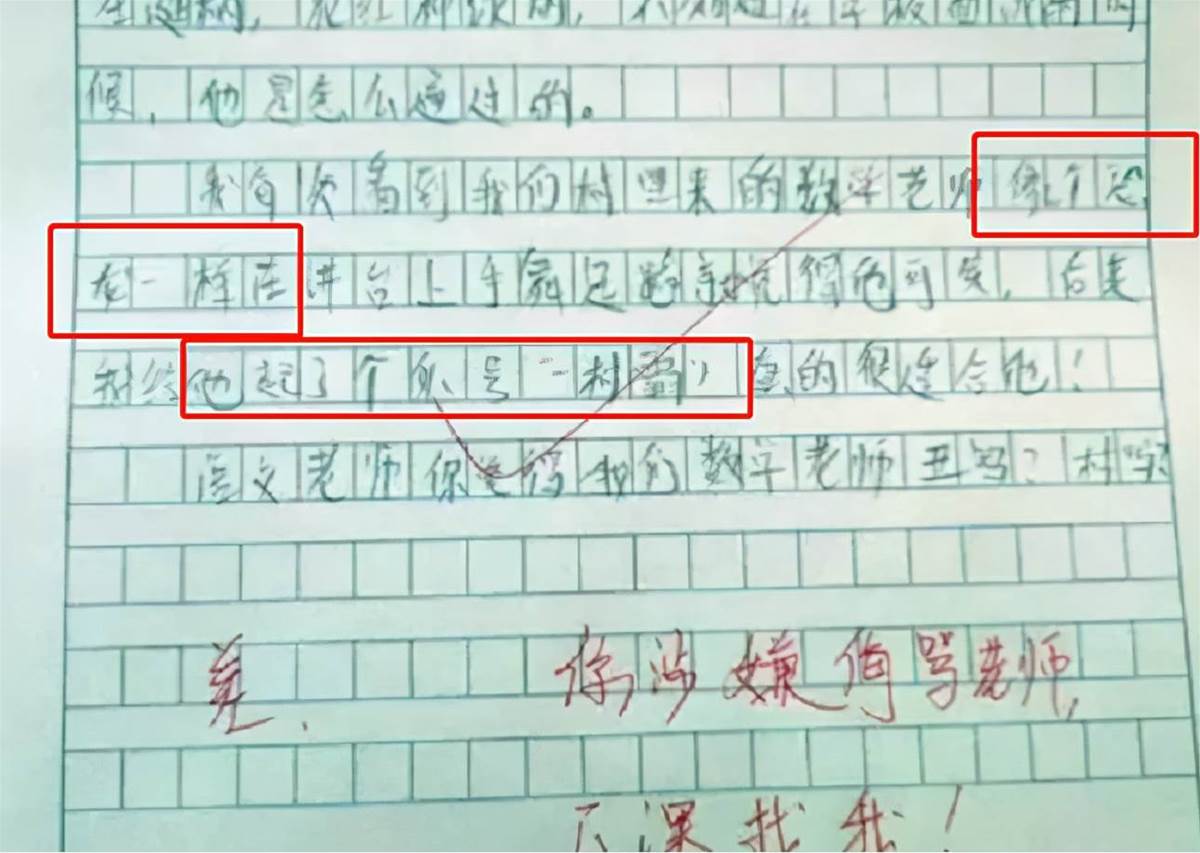 候，他是怎么过的。
我每次看到我们村里来的数学老师像个恐
龙一样在讲台上手舞足蹈就觉得他可笑，后来
我给他起了个外号“村霸”真的很适合他！
语文老师你觉得我们数学老师丑吗？村
你涉嫌侮骂老师,
下课找我！